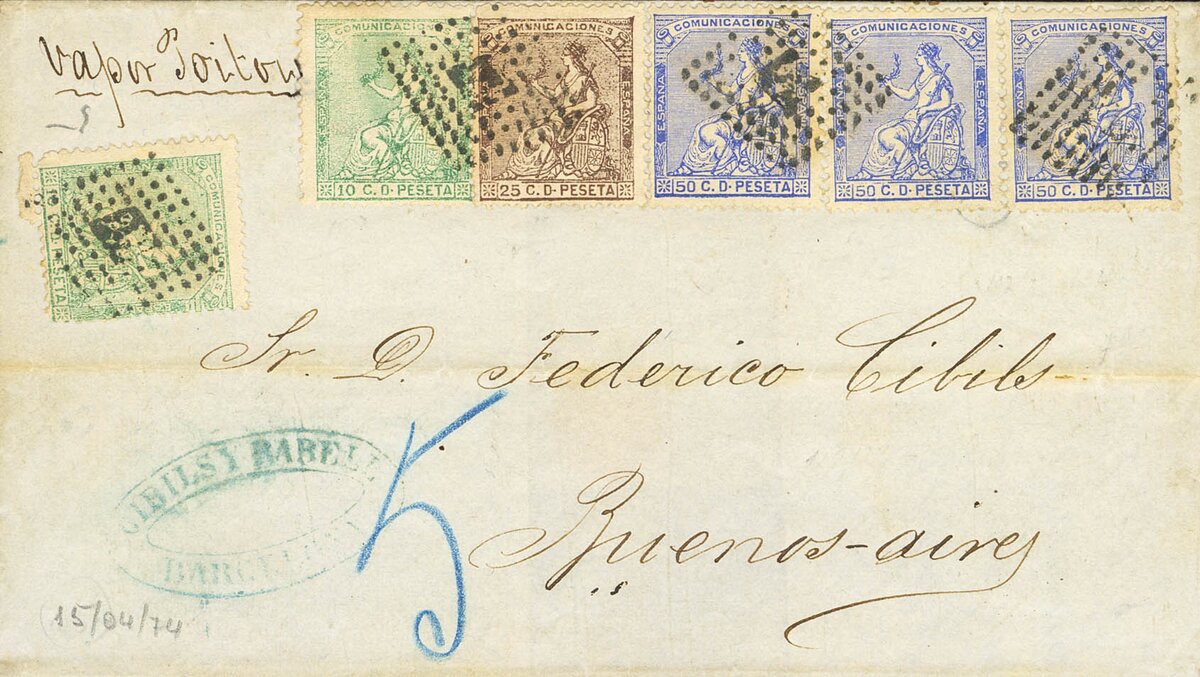 Vapor Poitou
COMUNICACIONES
ESPAÑA
10 C. D. PESETA
COMUNICACIONES
ESPAÑA
25 C. D. PESETA
COMUNICACIONES
ESPAÑA ESPAÑA
50 C. D. PESETA
COMUNICACIONES
ESPAÑA
50 C. D. PESETA
COMUNICACIONES
ESPAÑA
50 C. D. PESETA
COMUNICACIONES
C. D. PESETA
Sr. D. Federico Cibils
Buenos-aires
5
CIBILS Y BABELL
BARCELONA
15/04/74